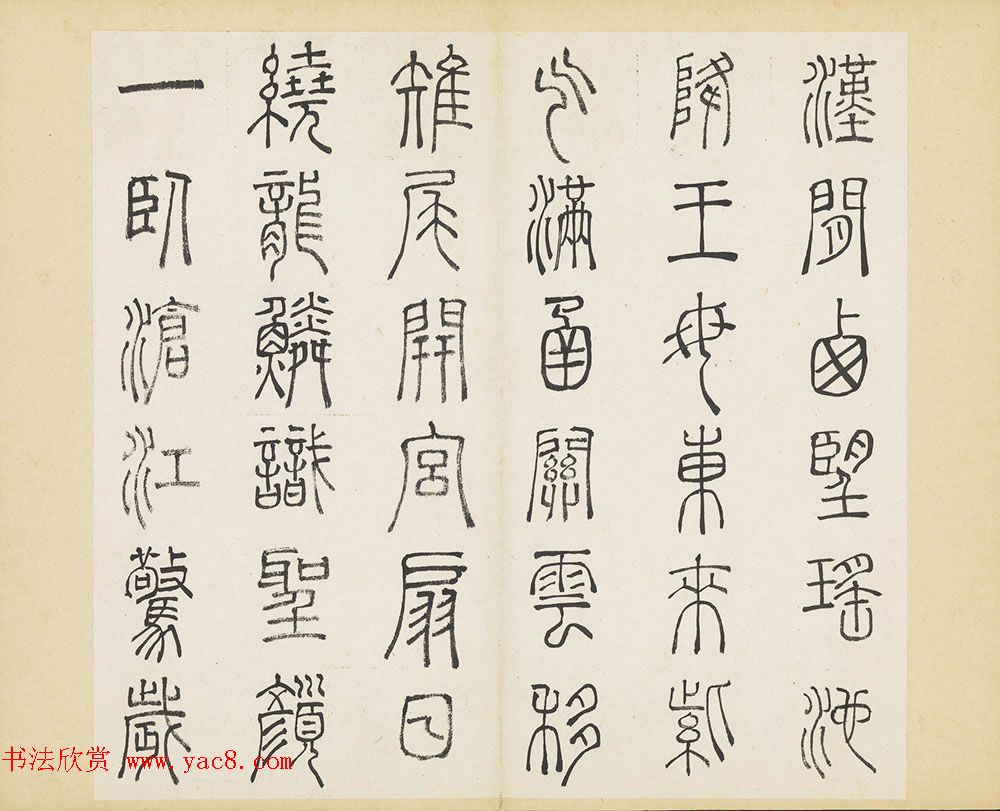 漢間西望瑤池
降王母東來紫
气滿函關雲移
雉尾開宮扇日
繞龍鱗識聖顏
一臥滄江驚歲
书法欣赏 www.yac8.com